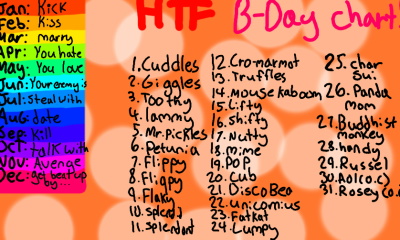 HTF B-Day chart!
Jan: Kick
Feb: Kiss
Mar: marry
Apr: You hate
May: You love
Jun: Your enemy is
Jul: Steal with
Aug: date
Sep: Kill
Oct: talk with
Nov: Avenge
Dec: get beat up by...
1. Cuddles
2. Giggles
3. Toothy
4. lammy
5. Mr. Pickles
6. Petunia
7. Flippy
8. Fliqpy
9. Flaky
10. splend
11. splendont
12. Cro-marmot
13. Truffles
14. Mouse kaboom
15. Lifty
16. Shifty
17. Nutty
18. mime
19. POP
20. Cub
21. Disco Beo
22. unicornius
23. Fatkat
24. Lumpy
25. char
Sui
26. Panda
mom
27. Buddhist
monkey
28. handy
29. Russel
31. Rosey